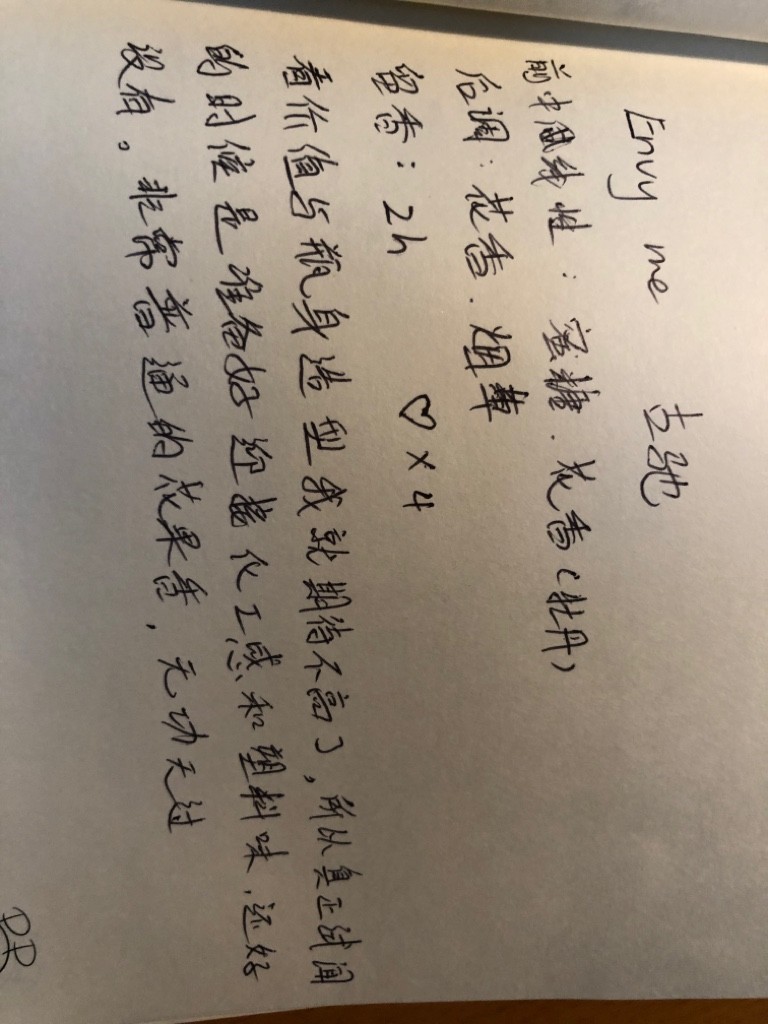 Envy me 古驰
前中调线性：蜜糖、花香（牡丹）
后调：花香、烟草
留香：2h ♡×4
看价值与瓶身造型我就期待不高了，所以真正试闻
的时候是准备好迎接化工感和塑料味，还好
没有。非常普通的花果香，无功无过